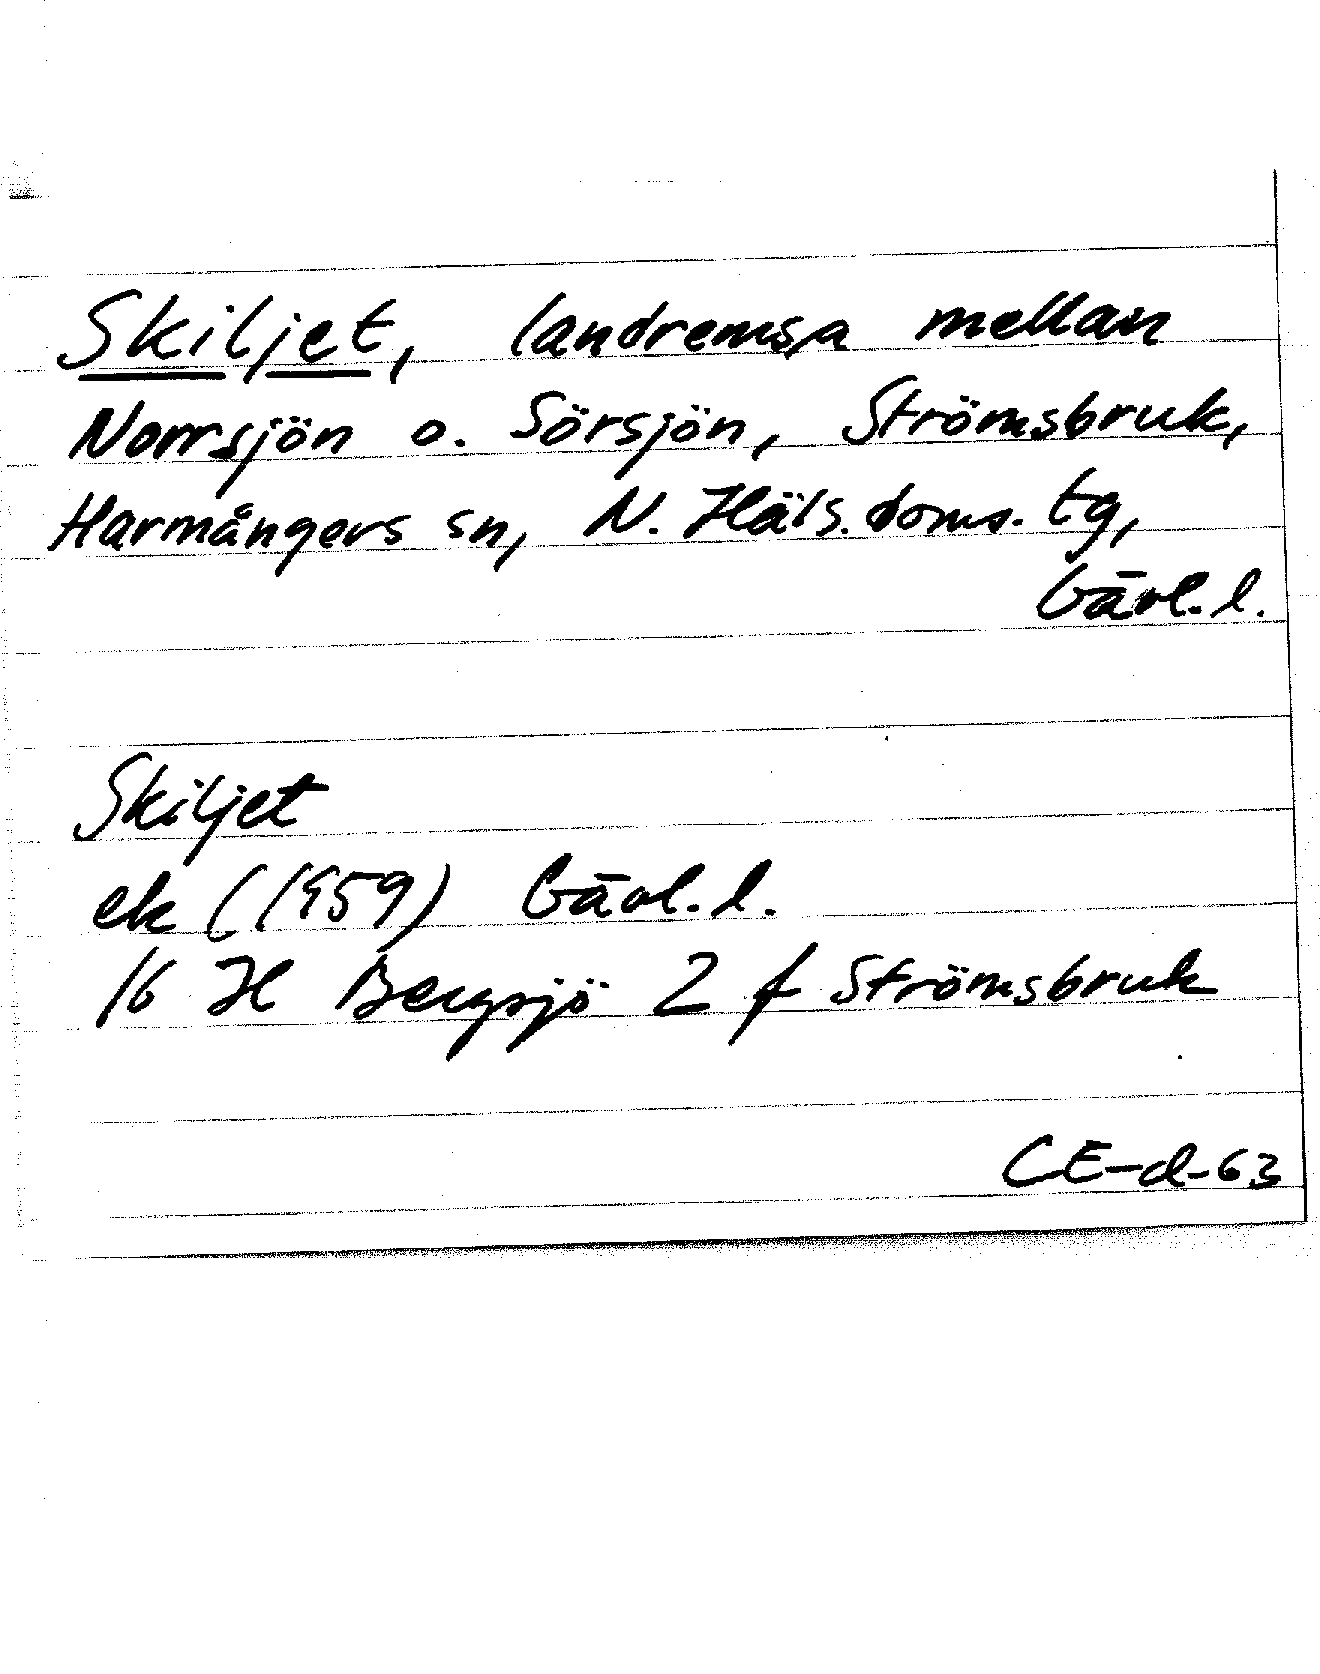 Skiljet, landremsa mellan
Norrsjön o. Sörsjön, Strömsbruk,
Harmångers sn, N. Häls. doms. tg,
Gävl. l.
Skiljet
ek (1959) Gävl. l.
16 H Bergsjö 2 f Strömsbruk
CE-d-63